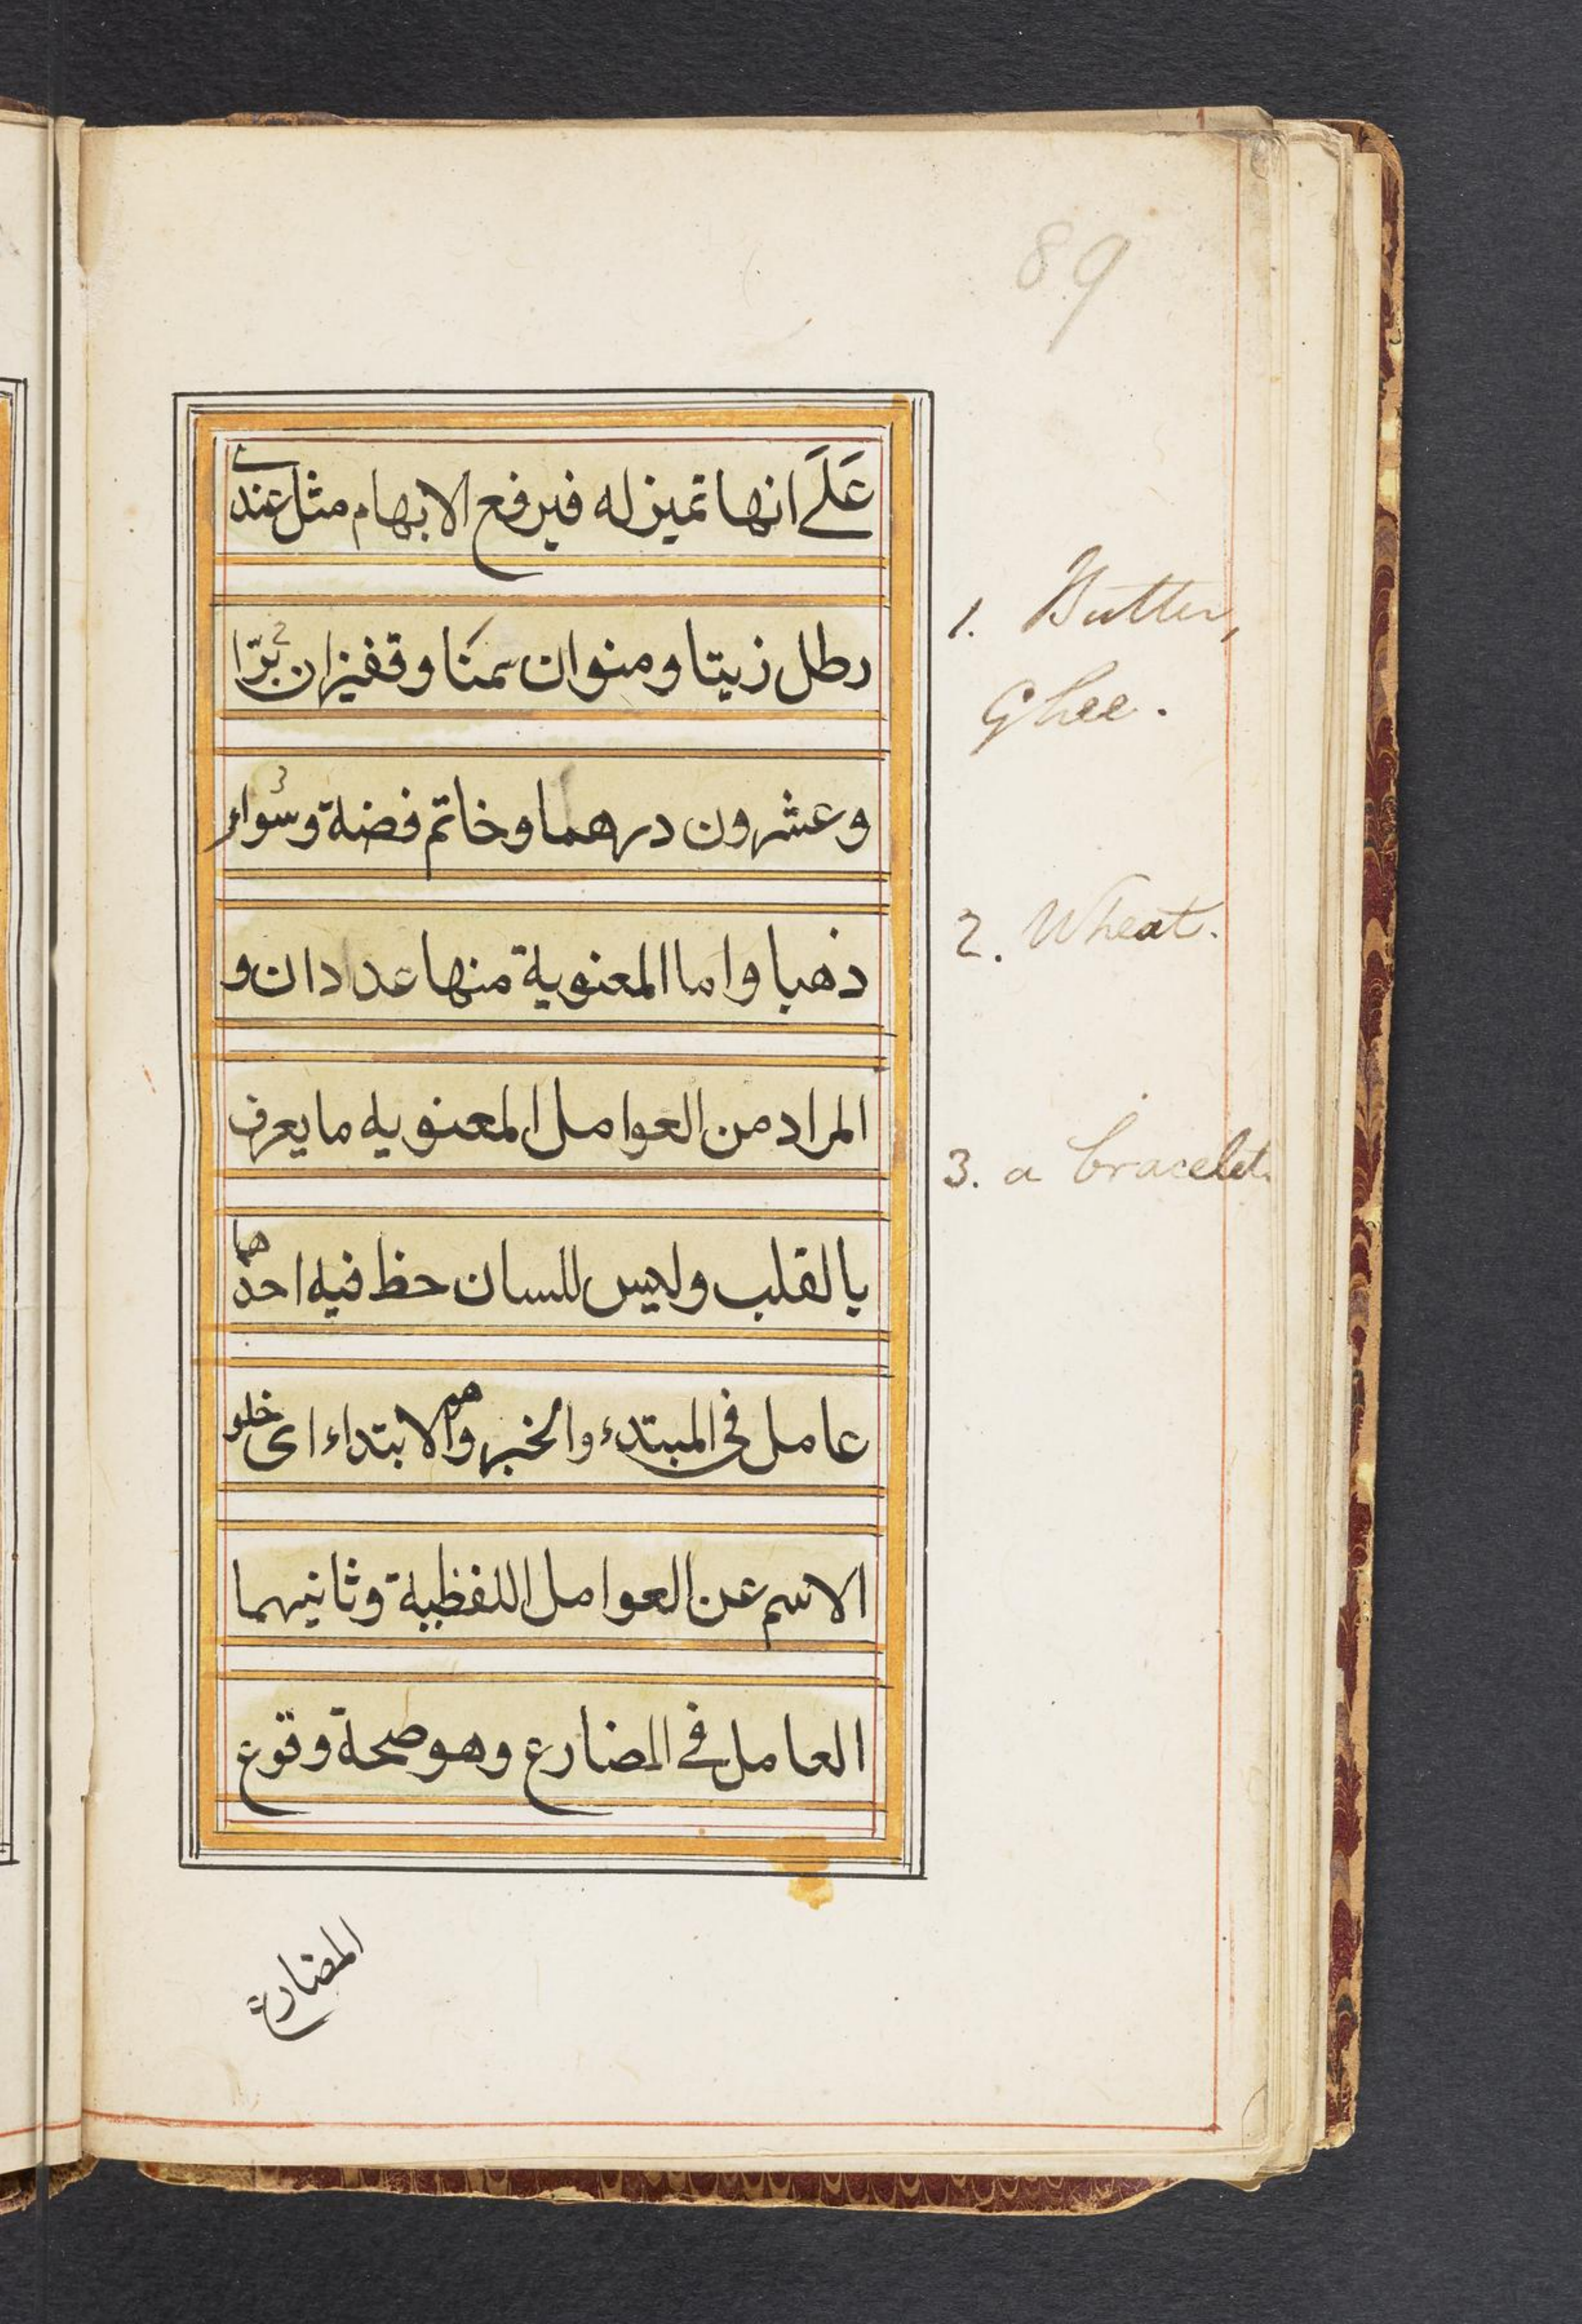 89
عَلَے انها تميز له فيرفع الابهام مثل عندے
رطل زيتا ومنوان سمنا وقفيزان برّا 2
وعشرون درهما وخاتم فضة وسُوار 3
ذهبا واما المعنوية منها عددان و
المراد من العوامل المعنويه ما يعرف
بالقلب وليس للسان حظ فيه احدهما
عامل فى المبتدء والخبر وهو الابتداء اى خلو
الاسم عن العوامل اللفظية وثانيهما
العامل فے المضارع وهو صحة وقوع
المضارع
1. Butter,
Ghee.
2. Wheat.
3. a bracelet.